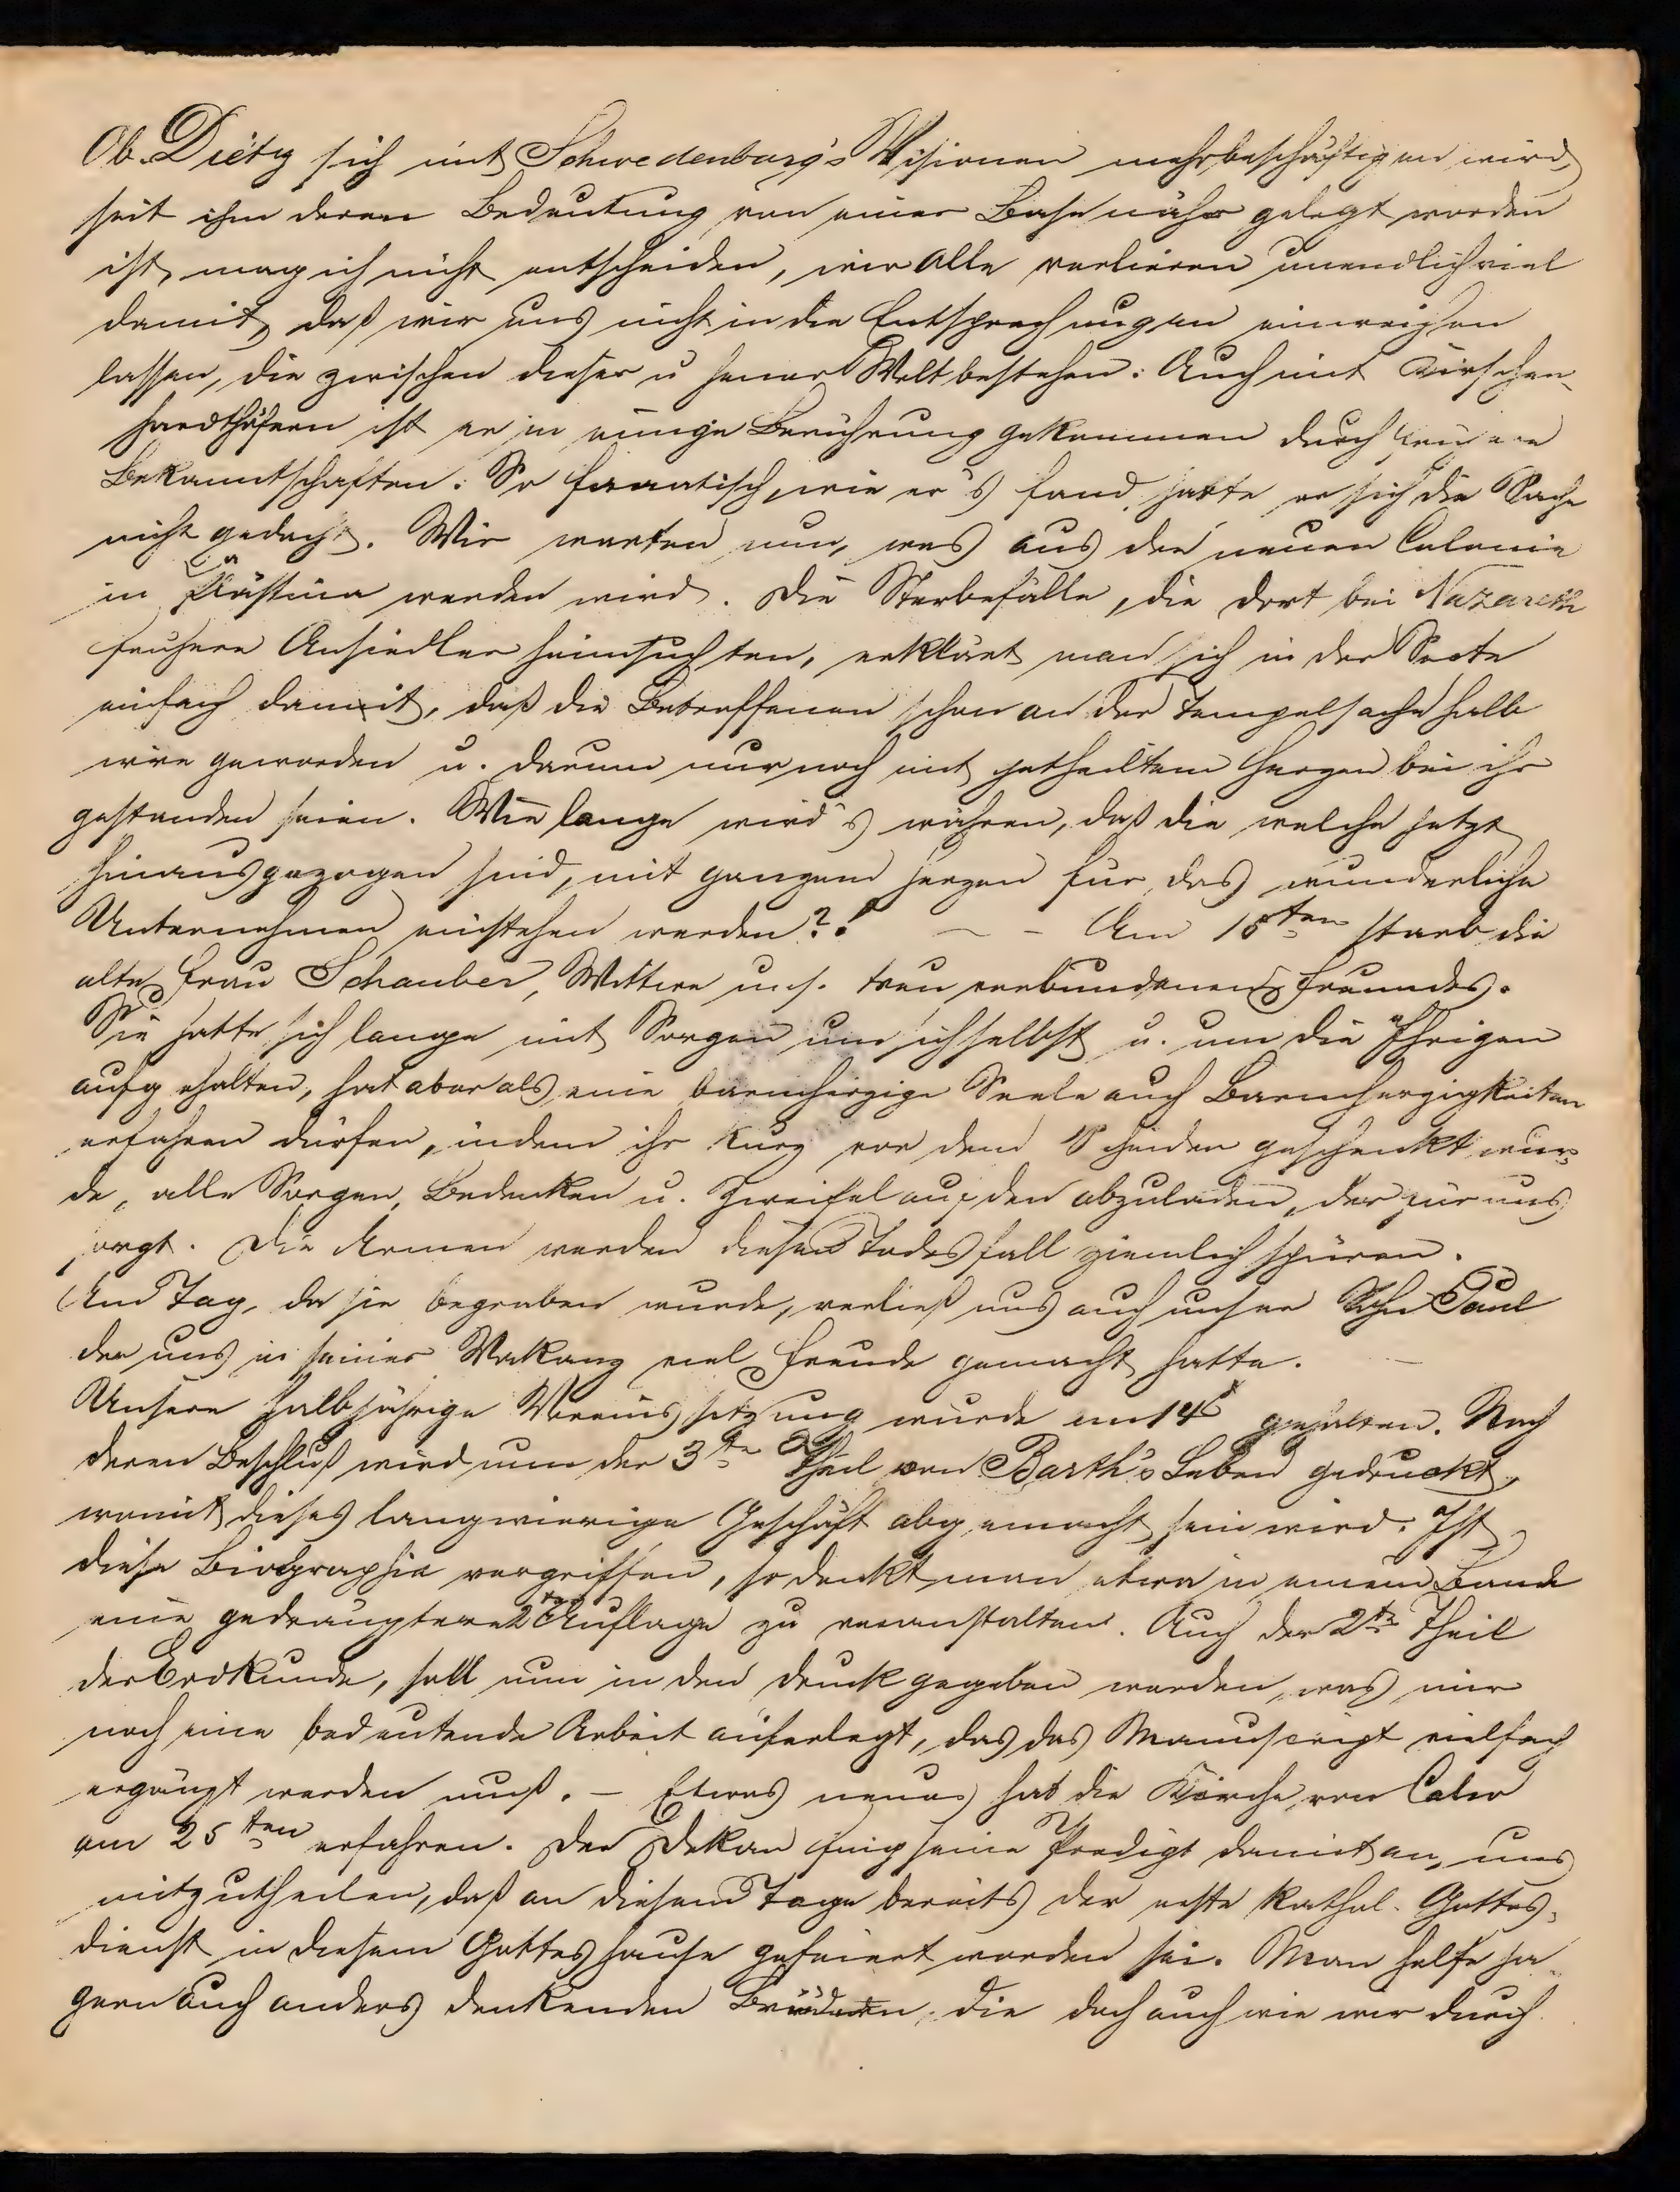 Ob Dietz sich mit Schwedenburg's Visionen mehr beschäftigen wird,
seit ihm deren Bedeutung von einer Base näher gelegt worden
ist, mag ich nicht entscheiden, wir alle verlieren unendlich viel
damit, daß wir uns nicht in die Entsprechungen einweihen
lassen, die zwischen dieser u jener Welt bestehen. Auch mit Kirschen-
hardthöfern ist er in einige Berührung gekommen durch
Bekanntschaften. So fanatisch, wie er's fand, hatte er sich die Sache
nicht gedacht. Wir warten nun, was aus der neuen Colonie
in Palästina werden wird. Die Sterbefälle, die dort bei Nazareth
frühere Ansiedler heimsuchten, erklärt man sich in der Secte
einfach damit, daß die Betroffenen schon an der Tempelsache halb
irre geworden u. darum nur noch mit getheiltem Herzen bei ihr
gestanden seien. Wie lange wird's währen, daß die welche jetzt
hinausgezogen sind, mit ganzem Herzen für das wunderliche
Unternehmen einstehen werden?! – – Am 18ten starb die
alte Frau Schauber, Wittwe uns. treu verbundenen Freundes.
Sie hatte sich lange mit Sorgen um sich selbst u. um die Ihrigen
aufgehalten, hat aber als eine barmherzige Seele auch Barmherzigkeiten
erfahren dürfen, indem ihr kurz vor dem Scheiden geschenkt wur-
de, alle Sorgen, Bedenken u. Zweifel auf den abzuladen, der für uns
sorgt. Die Armen werden diesen Todesfall ziemlich spüren.
Am Tag, da sie begraben wurde, verließ uns auch unser Sohn Paul
der uns in seiner Vakanz viel Freude gemacht hatte.
Unsere halbjährige Vereinssitzung wurde am 14 gehalten. Nach
deren Beschluß wird nun der 3te Theil von Barth's Leben gedruckt,
womit dieses langwierige Geschäft abgemacht sein wird. Ist
diese Biographie vergriffen, so denkt man etwa in einem Bande
eine gedrängtere 2te Auflage zu veranstalten. Auch der 2te Theil
der Erdkunde, soll nun in den Druck gegeben werden, was mir
noch eine bedeutende Arbeit auferlegt, das das Manuscript vielfach
ergänzt werden muß. – Etwas neues hat die Kirche von Calw
am 25ten erfahren. Der Dekan fing seine Predigt damit an, uns
mitzutheilen, daß an diesem Tage bereits der erste kathol. Gottes-
dienst in diesem Gotteshause gefeiert worden sei. Man helfe ja
gern auch anders denkenden Brüdern, die doch auch wie wir durch